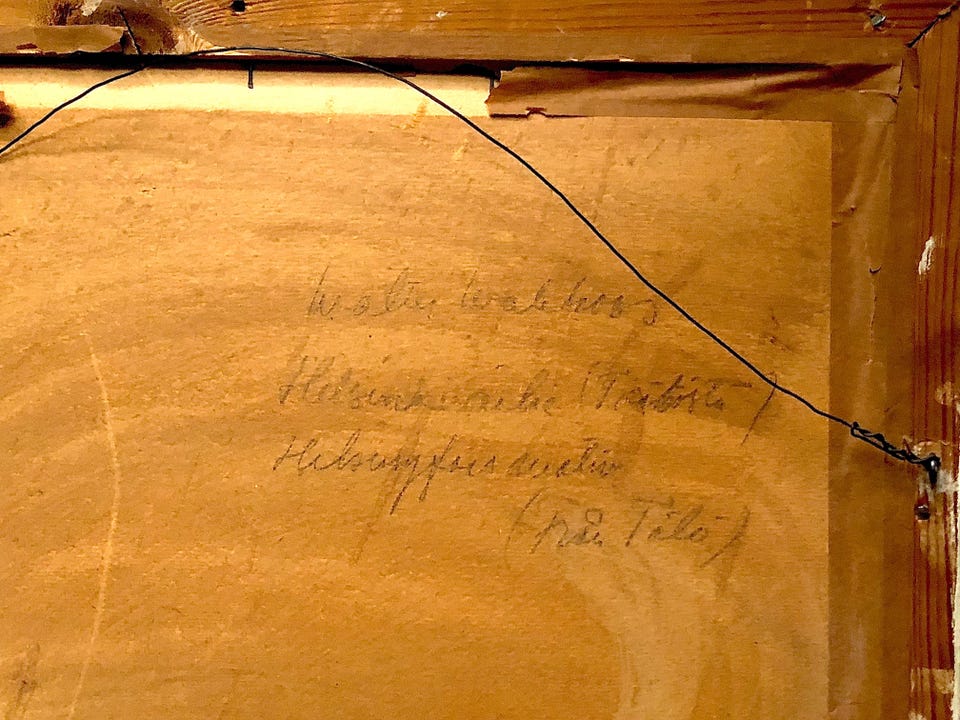 Wahlroos
Helsinki aihe (Töölöstä)
Helsingfors motiv
(från Tölö)